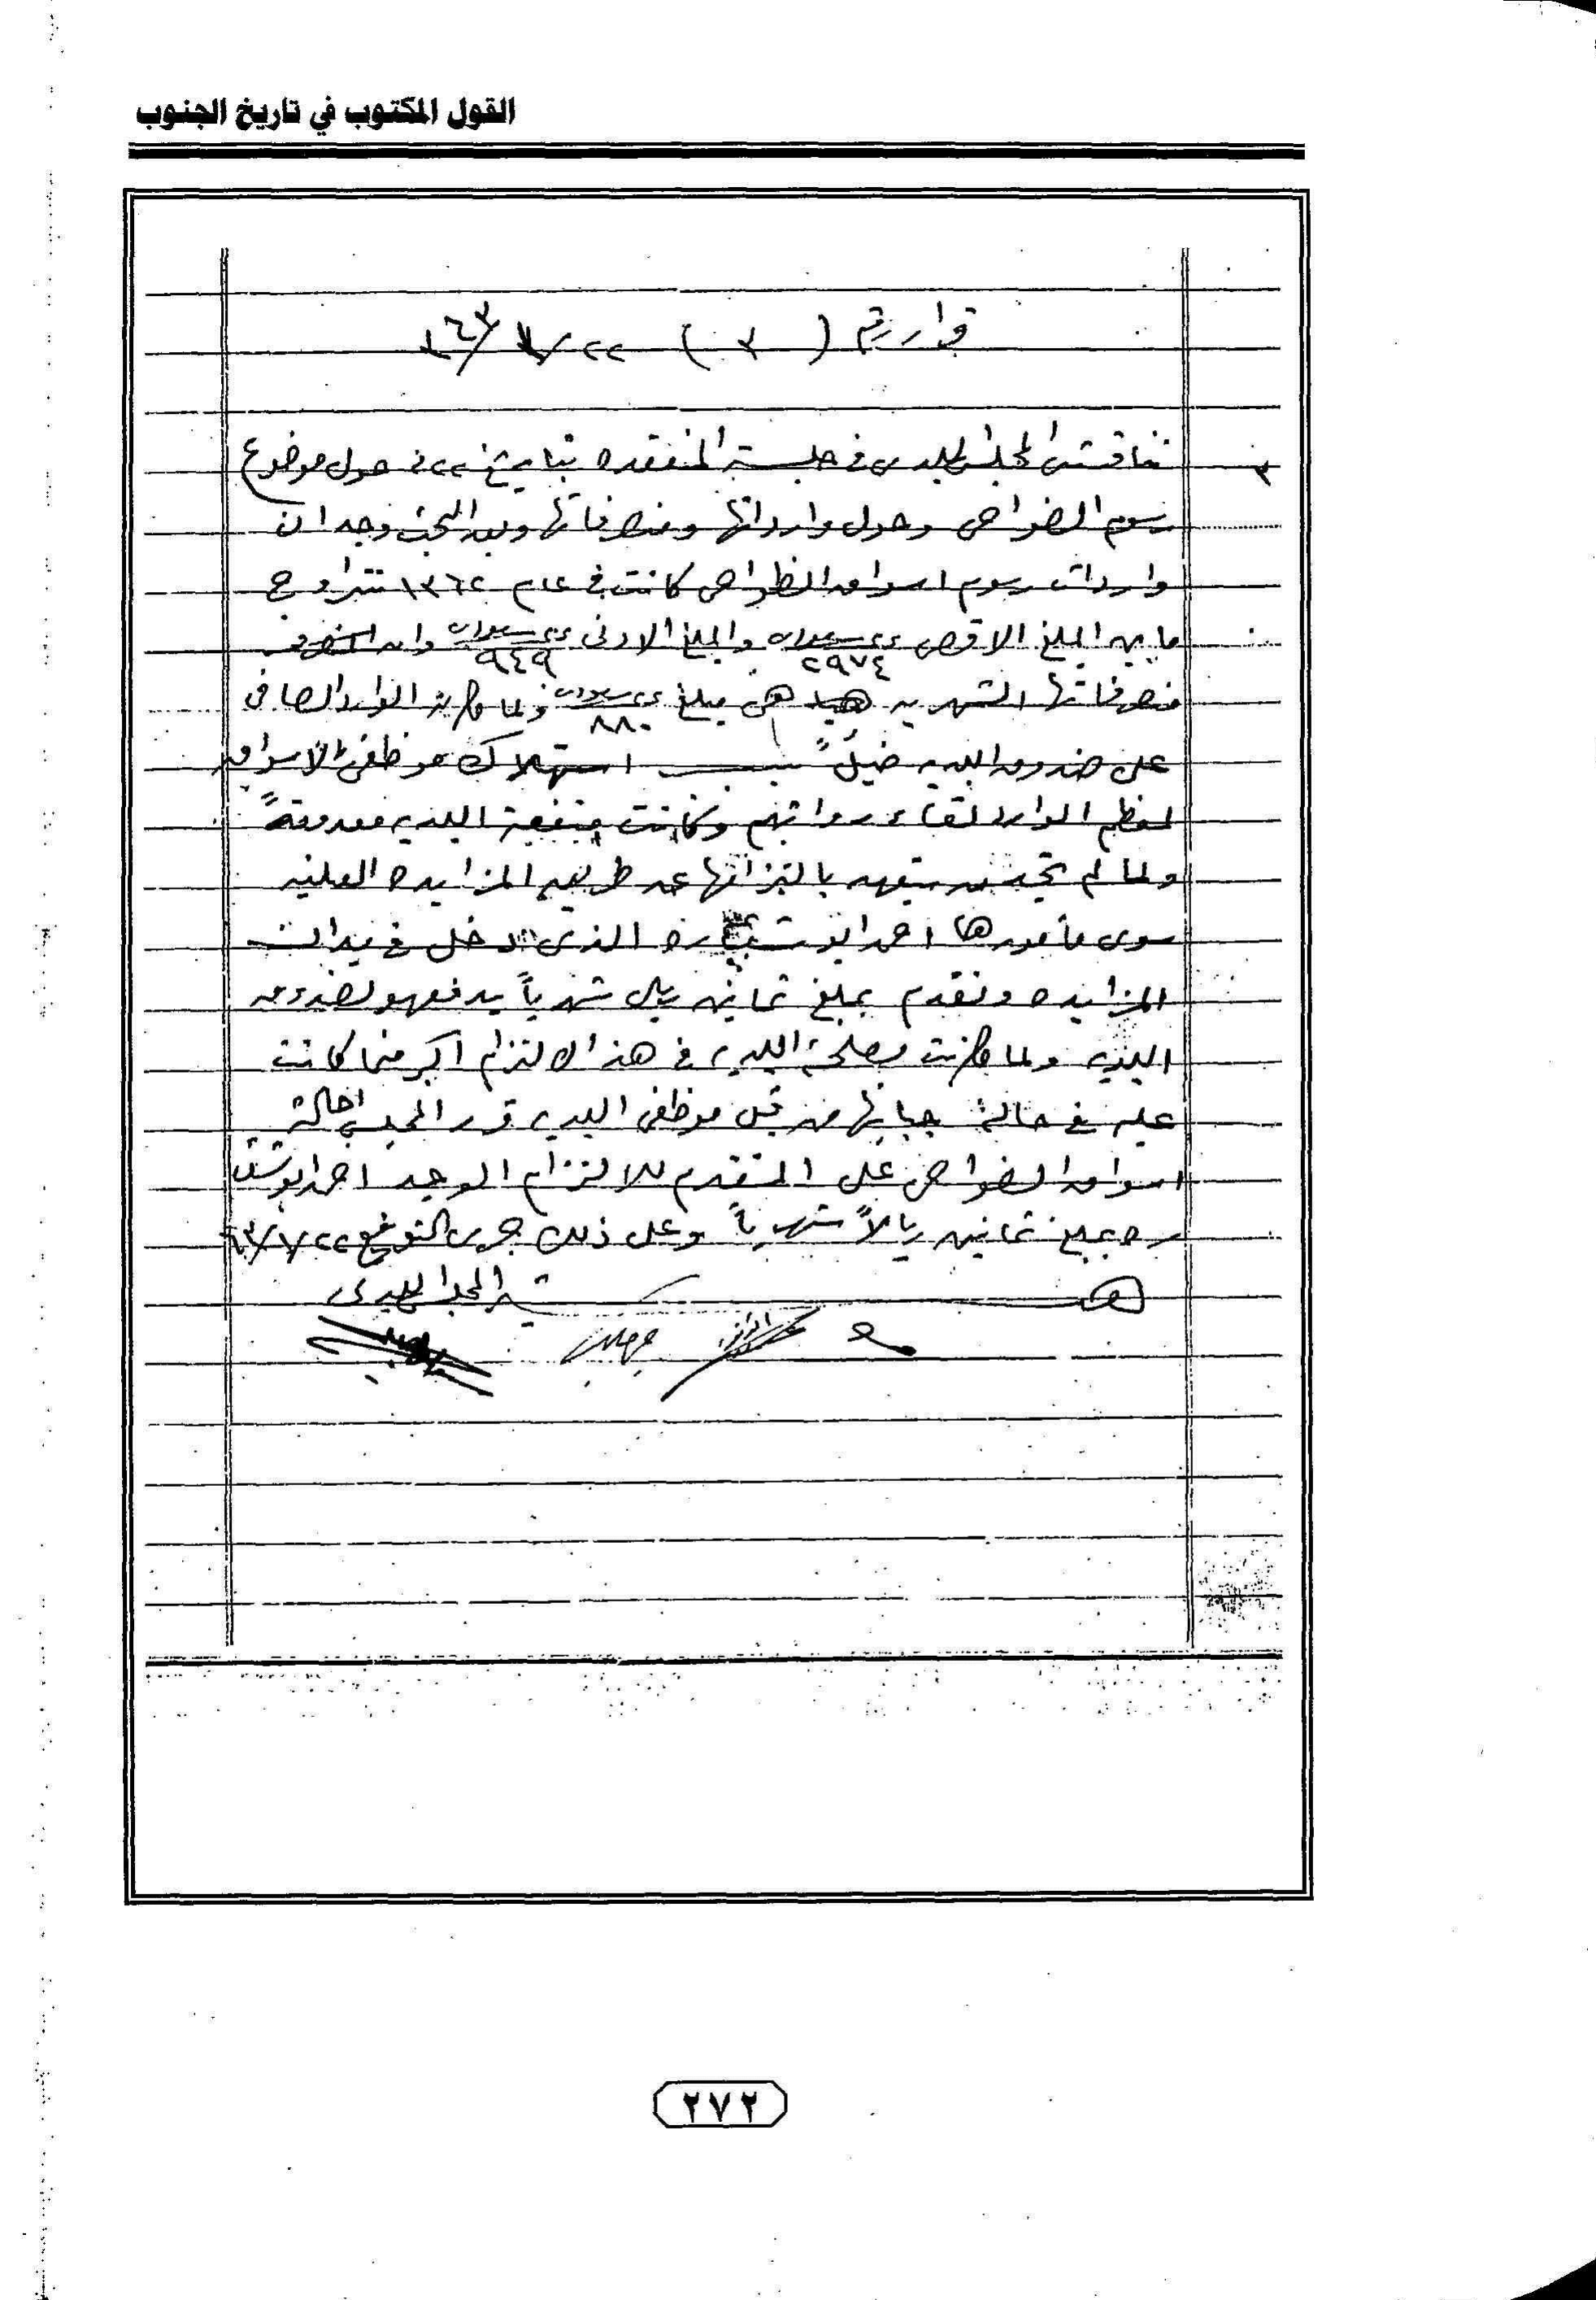 القول المكتوب في تاريخ الجنوب
قرار رقم ( ٣ ) ٢٢/٧/٦٣
٣ تناقش المجلس البلدي في جلسته المنعقده بتاريخ حول موضوع
رسوم الضواحي وحول وارداتها ومنصرفاتها وبعد البحث وجد ان
واردات رسوم اسواق الظواحي كانت في عام ١٣٦٢ تتراوح
ما بين المبلغ الاقصى ٢٩٧٤ والمبلغ الادنى ٩٤٩ وان
منصرفاتها الشهريه هي مبلغ ٨٨٠ ولما كان الوارد الصافي
على صندوق البلديه ضئيلاً بسبب استهلاك موظفي الاسواق
لمعظم الوارد لقاء رواتبهم وكانت منفعة البلديه معدومةً
ولما لم تجد من يتعهد بالتزامها عن طريق المزايده العلنيه
سوى مأمورها احمد ابو الذي دخل في ميدان
المزايده وتقدم بمبلغ ثمانين ريال شهرياً يدفعها لصندوق
البلديه ولما كانت مصلحة البلديه في هذا الالتزام اكبر مما كانت
عليه في حالة جبايتها من قبل موظفي البلديه قرر المجلس احالة
اسواق الضواحي على المتقدم للالتزام الوحيد احمد
بمبلغ ثمانين ريالاً شهرياً وعلى ذلك جرى التوقيع ٢٢/٧/٦٣
المجلس البلدي
٢٧٢